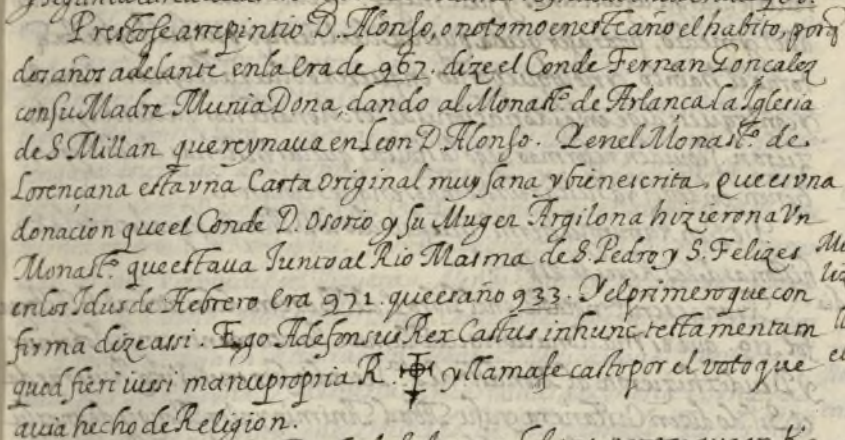 Prestose arrepintio D. Alonso, o no tomo en este año el habito, porq̃
dos años adelante en la Era de 967. dize el Conde Fernan Gonçalez
con su Madre Munia Dona, dando al Monastº. de Arlança la Iglesia
de S. Millan que reynaua en Leon D. Alonso. Y en el Monastº. de
Lorençana esta vna Carta original muy sana y bien escrita, que es vna
donacion que el Conde D. Osorio y su Muger Argilona hizieron a Vn
Monastº. que estaua Junto al Rio Masma de S. Pedro y S. Felizes
en los Idus de Hebrero Era 971. que es año 933. Y el primero que con
firma dize assi. Ego Adefonsus Rex Castus in hunc testamentum
quod fieri iussi manu propria R. y llamase casto por el voto que
auia hecho de Religion.